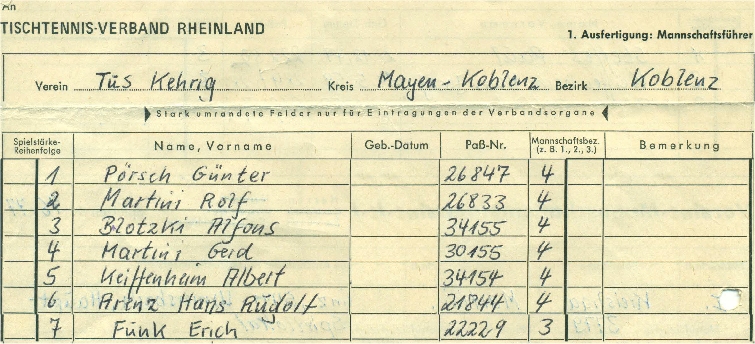 An
TISCHTENNIS-VERBAND RHEINLAND
1. Ausfertigung: Mannschaftsführer
Verein Tus Kehrig Kreis Mayen-Koblenz Bezirk Koblenz
Stark umrandete Felder nur für Eintragungen der Verbandsorgane
Spielstärke-Reihenfolge Name, Vorname Geb.-Datum Paß-Nr. Mannschaftsbez. (z. B. 1., 2., 3.) Bemerkung
1 Pörsch Günter 26847 4
2 Martini Rolf 26833 4
3 Blotzki Alfons 34155 4
4 Martini Gerd 30155 4
5 Keiffenheim Albert 34154 4
6 Arenz Hans Rudolf 21844 4
7 Funk Erich 22229 3